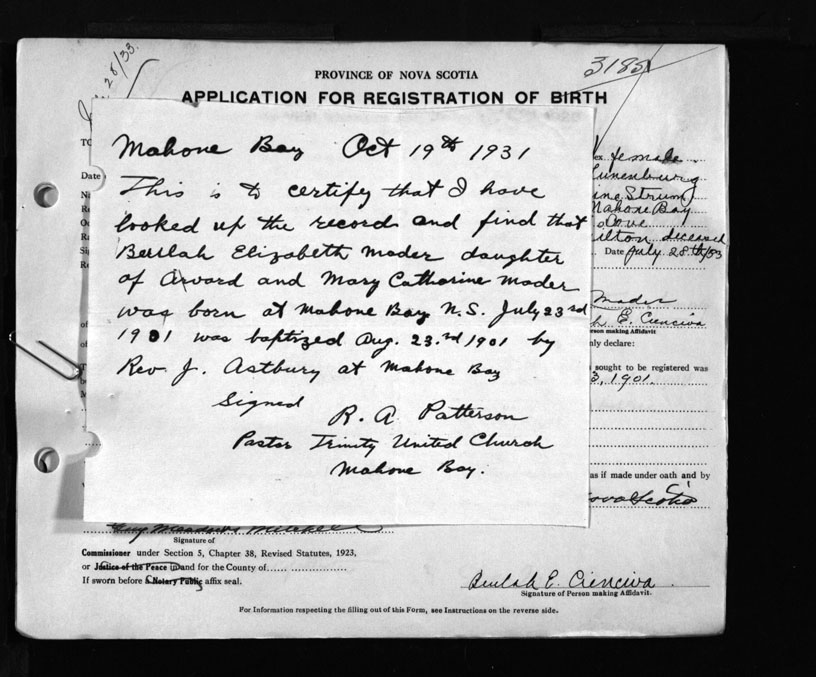 28/33.
3185
PROVINCE OF NOVA SCOTIA
APPLICATION FOR REGISTRATION OF BIRTH
Mahone Bay Oct 19th 1931
This is to certify that I have
looked up the records and find that
Beulah Elizabeth Mader daughter
of Arvard and Mary Catharine Mader
was born at Mahone Bay N.S. July 23rd
1901 was baptized Aug. 23.rd 1901 by
Rev. J. Astbury at Mahone Bay
Signed
R. A. Patterson
Pastor Trinity United Church
Mahone Bay.
TO
Date
female
Lunenburg
Strum
Mahone Bay
deceased
Date July 28th/33
Mader
E. Cienciva
erson making Affidavit
nly declare:
sought to be registered was
3, 1901.
as if made under oath and by
ova Scotia
Signature of
Commissioner under Section 5, Chapter 38, Revised Statutes, 1923,
or Justice of the Peace in and for the County of
If sworn before a Notary Public affix seal.
Beulah E. Cienciva
Signature of Person making Affidavit.
For Information respecting the filling out of this Form, see Instructions on the reverse side.